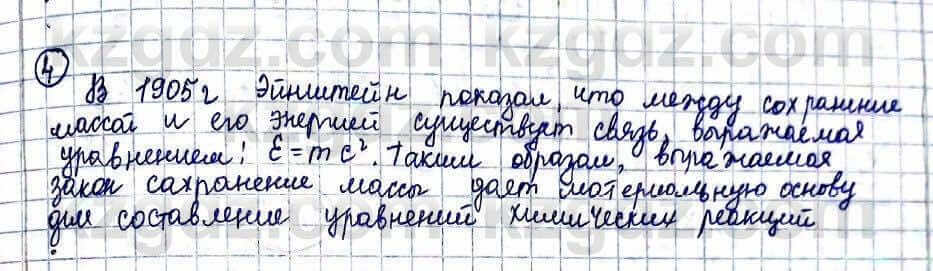 kzgdz.com
4
В 1905г Эйнштейн показал, что между сохранение
массой и его энергией существует связь, выражаемая
уравнением: E = mc². Таким образом, выражаемая
закон сахранение массы дает материальную основу
для составление уравнений химических реакций